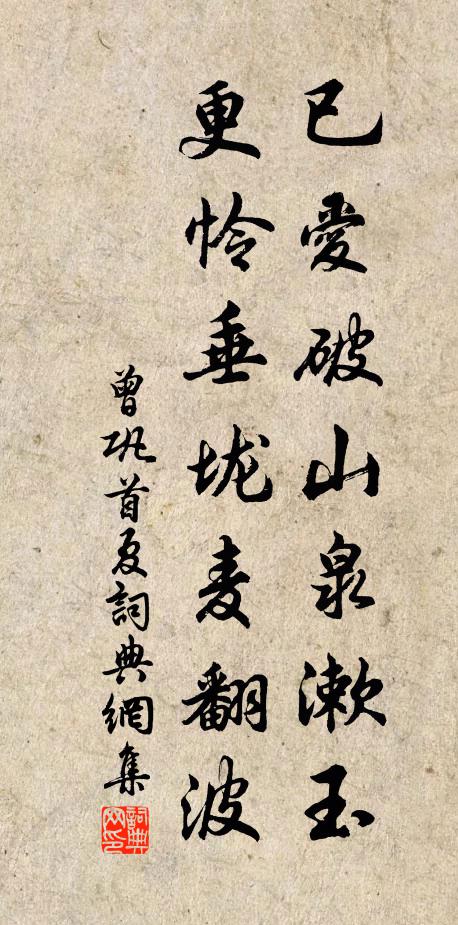 已愛破山泉漱玉
更怜垂垅麦翻波
曾巩首夏詞典網集
詞典网印